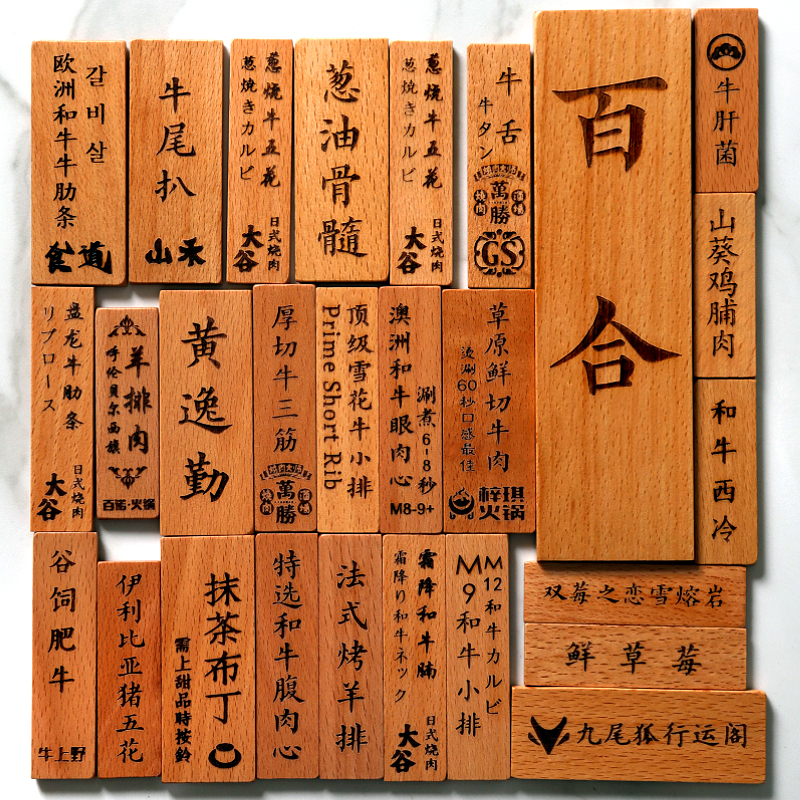 갈비살
欧洲和牛牛肋条
食道
牛尾扒
山禾
葱烧牛五花
葱焼きカルビ
日式烧肉
大谷
葱油骨髓
葱烧牛五花
葱焼きカルビ
日式烧肉
大谷
牛舌
牛タン
萬勝
燒肉
酒場
GS
百合
牛肝菌
盘龙牛肋条
リブロース
日式烧肉
大谷
羊排肉
呼伦贝尔西旗
百诺·火锅
黄逸勤
厚切牛三筋
萬勝
燒肉
酒場
顶级雪花牛小排
Prime Short Rib
澳洲和牛眼肉心
涮煮6-8秒
M8-9+
草原鲜切牛肉
烫涮60秒口感最佳
梓琪
火锅
山葵鸡脯肉
和牛西冷
谷饲肥牛
牛上野
伊利比亚猪五花
抹茶布丁
需上甜品時按鈴
特选和牛腹肉心
法式烤羊排
霜降和牛腩
霜降り和牛ネック
日式烧肉
大谷
M12和牛カルビ
M9和牛小排
双莓之恋雪熔岩
鲜草莓
九尾狐行运阁